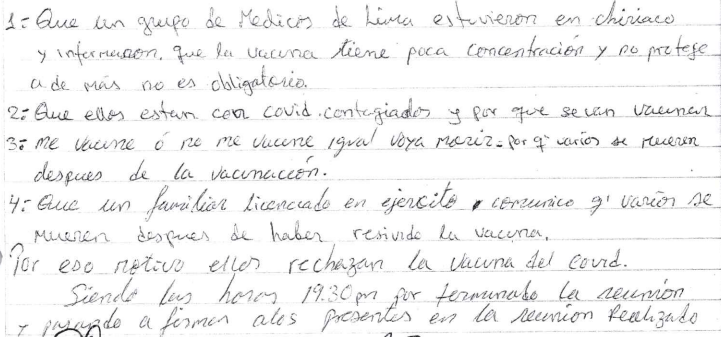 1= Que un grupo de Medicos de Lima estuvieron en chiriaco
y informaron. que la vacuna tiene poca concentración y no protege
a de más no es obligatorio.
2: Que ellos estan con covid. contagiados y por que se van vacunar
3: me vacune ó no me vacune igual voy a morir. por q' varios se mueren
despues de la vacunacción.
4: Que un familiar licenciado en ejercito, comunico q' varios se
mueren despues de haber resivido la vacuna.
Por eso motivo ellos rechazan la vacuna del covid.
Siendo las horas 19:30 pm por terminado la reunión
y pasando a firmar a los presentes en la reunión Realizado